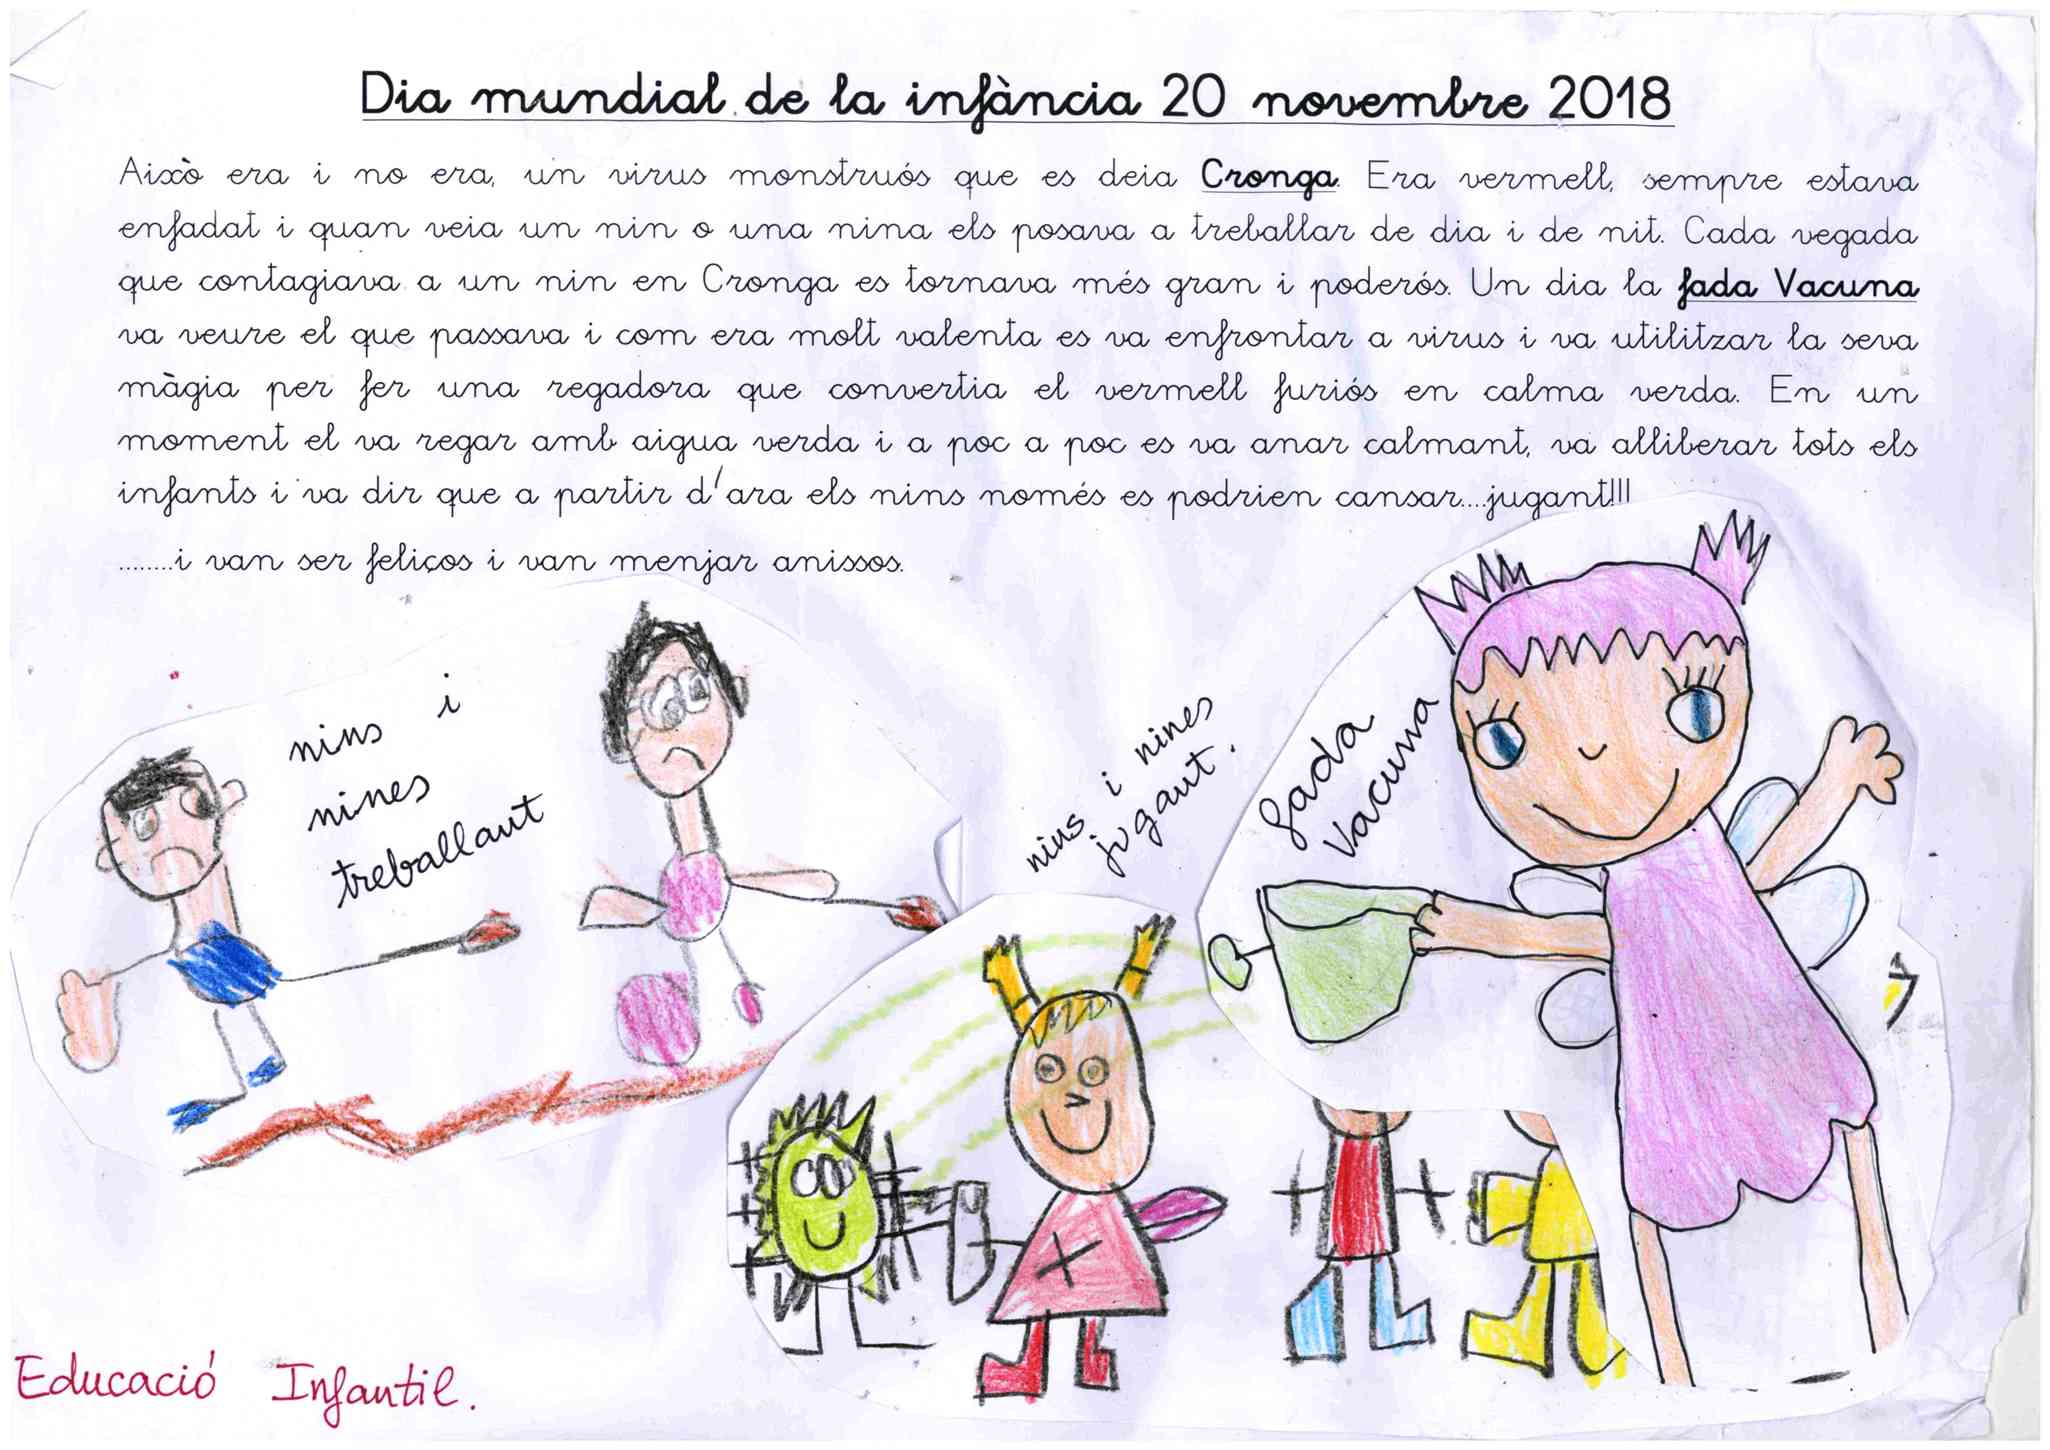 Dia mundial de la infància 20 novembre 2018
Això era i no era, un virus monstruós que es deia Cronga. Era vermell, sempre estava
enfadat i quan veia un nin o una nina els posava a treballar de dia i de nit. Cada vegada
que contagiava a un nin en Cronga es tornava més gran i poderós. Un dia la fada Vacuna
va veure el que passava i com era molt valenta es va enfrontar a virus i va utilitzar la seva
màgia per fer una regadora que convertia el vermell furiós en calma verda. En un
moment el va regar amb aigua verda i a poc a poc es va anar calmant, va alliberar tots els
infants i va dir que a partir d'ara els nins només es podrien cansar....jugant!!!
........i van ser feliços i van menjar anissos.
nins i
nines
treballant
nins i nines
jugant.
fada
Vacuna
Educació Infantil.